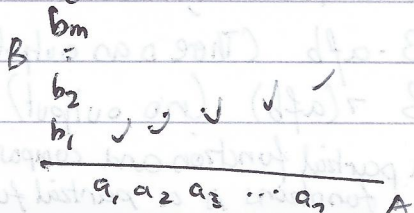 bm
B :
b2
b1
a1 a2 a3 ... an A